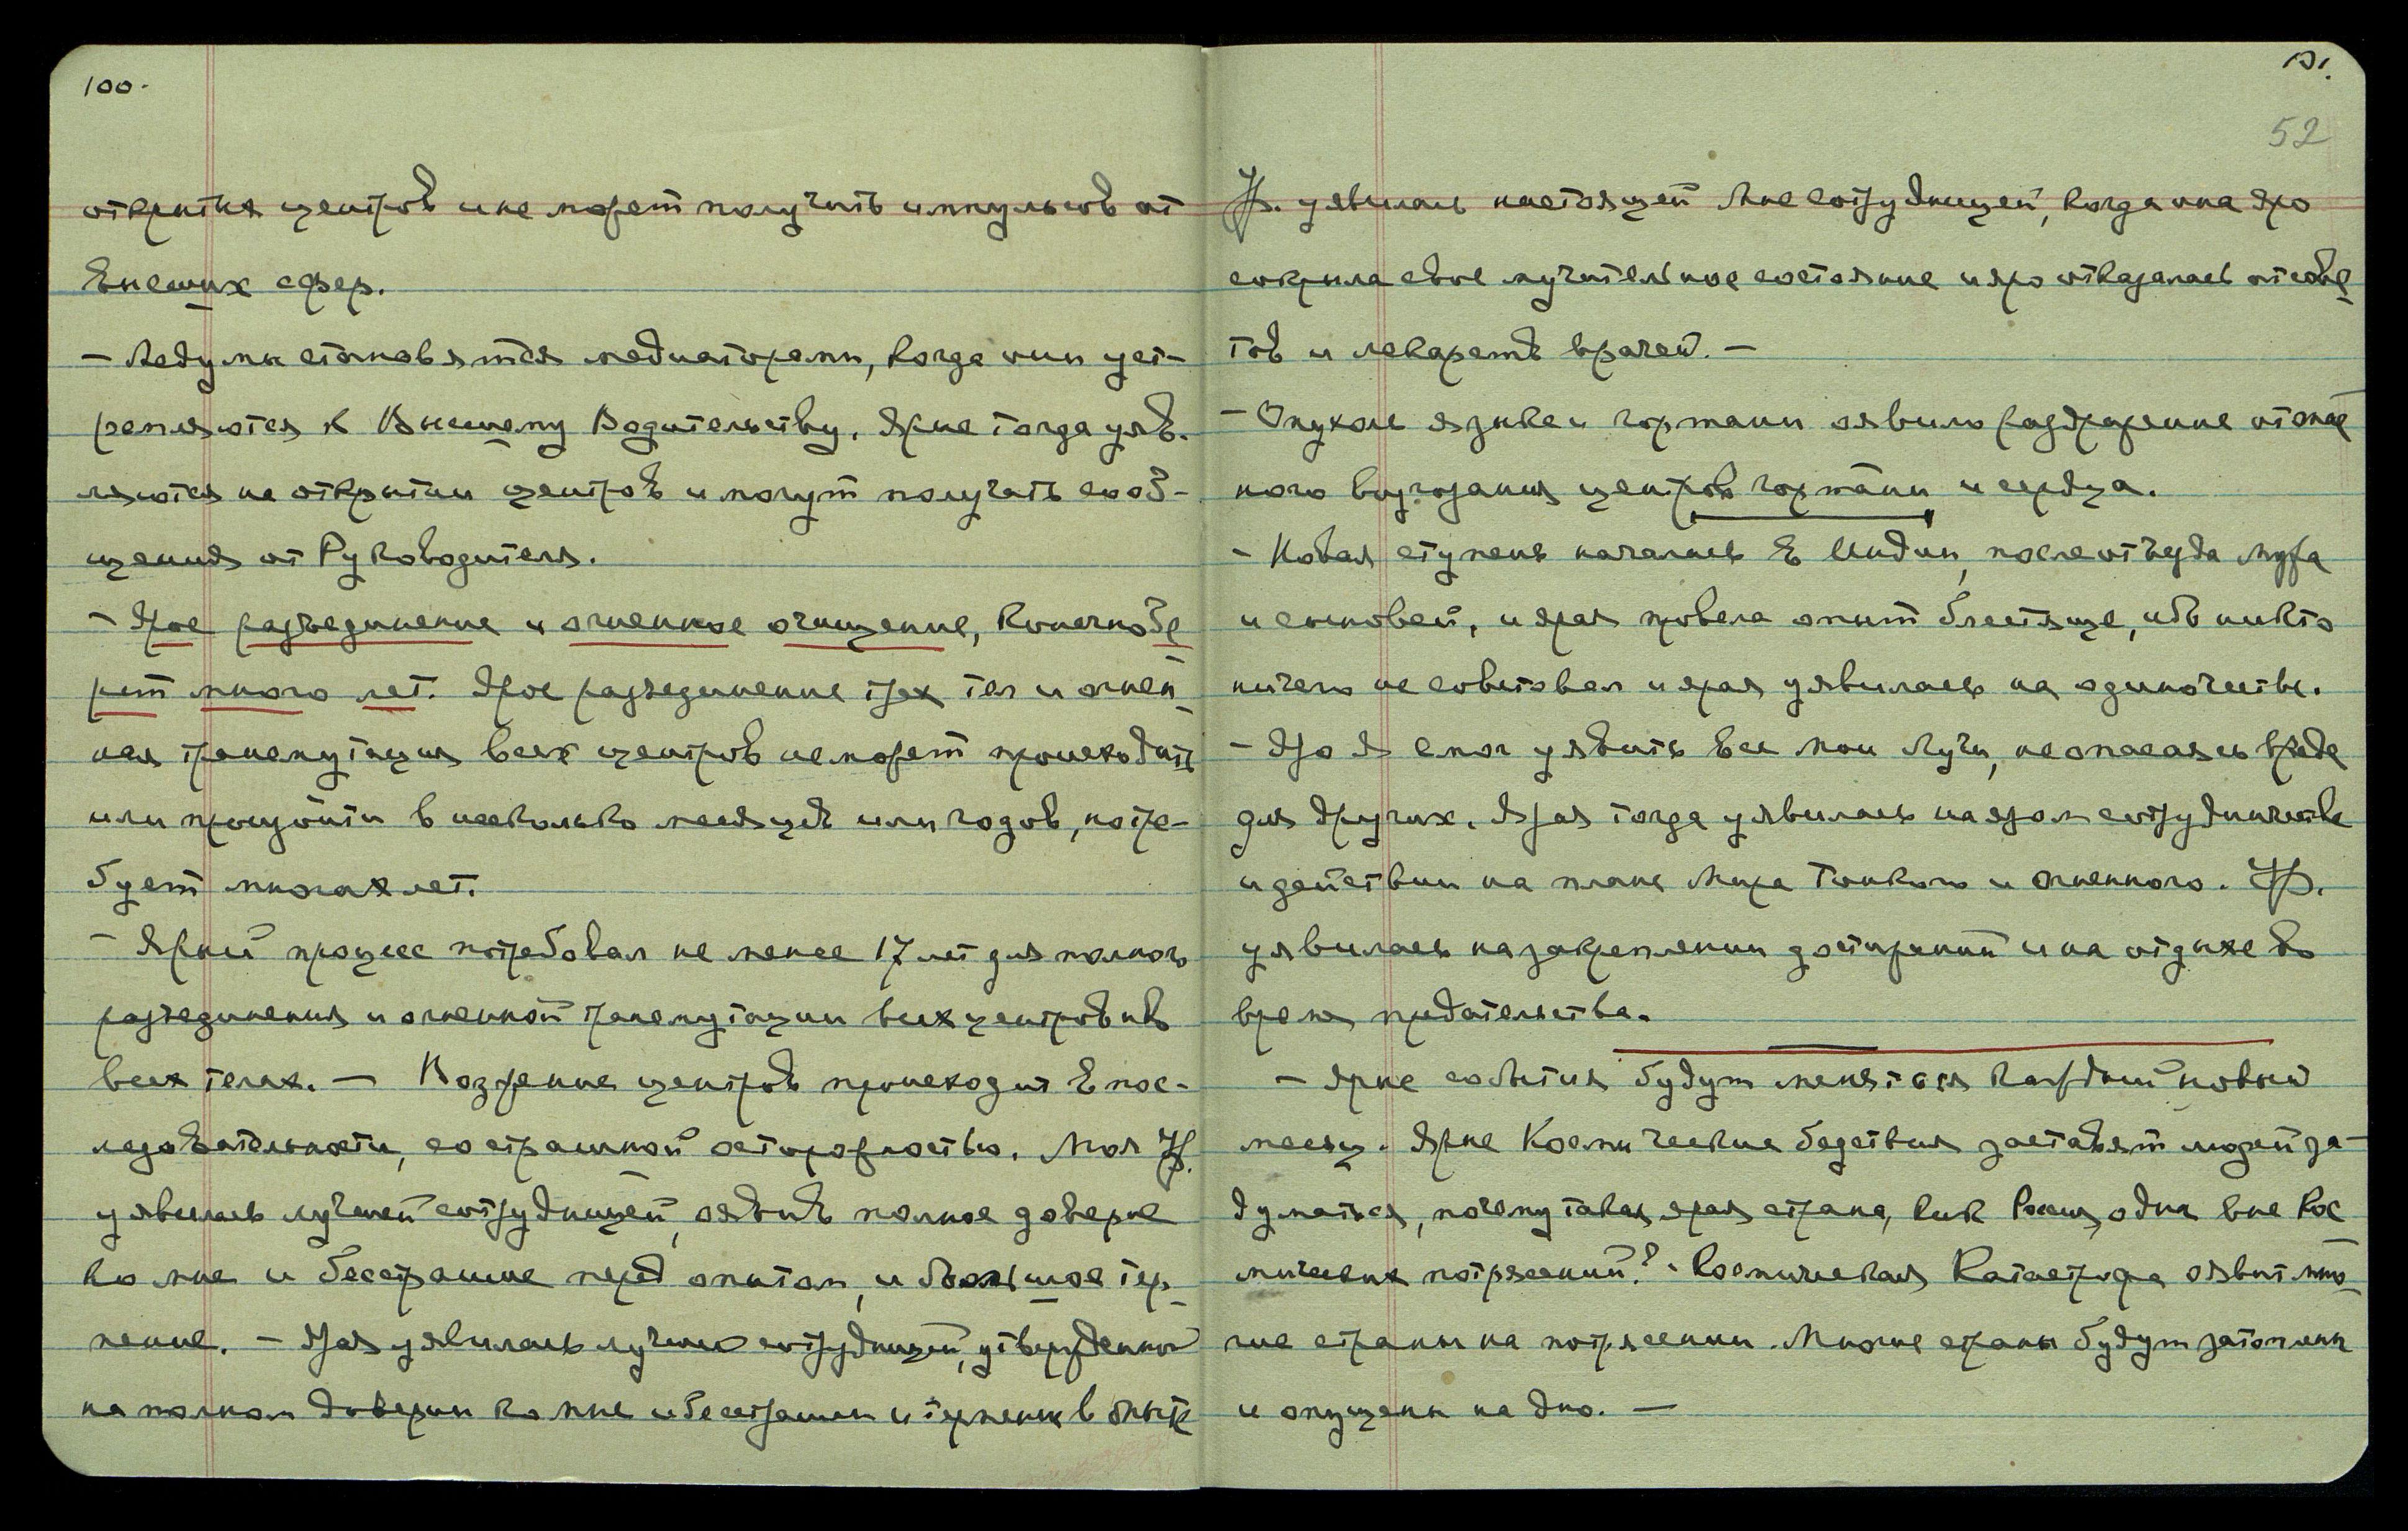 100.
открытия центров и не может получить импульсов от
Внешних сфер.
— Медиумы становятся медиаторами, когда они уст-
ремляются к Высшему Водительству. Ярые тогда уяв-
ляются на открытии центров и могут получать сооб-
щения от Руководителя.
— Ярое разъединение и огненное очищение, конечно бе
рет много лет. Ярое разъединение трех тел и огнен-
ная трансмутация всех центров не может происходить
или произойти в несколько месяцев или годов, но тре-
бует многих лет.
— Ярый процесс потребовал не менее 17 лет для полного
разъединения и огненной трансмутации всех центров и во
всех телах. — Возжение центров происходит в пос-
ледовательности, со страшной осторожностью. Моя Ур.
уявилась лучшей сотрудницей, оявив полное доверие
ко мне и бесстрашие перед опытом, и большое тер-
пение. — Ярая уявилась лучшей сотрудницей, утвержденной
на полном доверии ко мне и бесстрашии и терпении в опыте
101.
52
Ур. уявилась настоящей Мне сотрудницей, когда она яро
сокрыла свое мучительное состояние и яро отказалась от сове-
тов и лекарств врачей. —
— Опухоль языка и гортани оявило раздражение от
ного возгорания центров гортани и сердца.
— Новая ступень началась в Индии, после отъезда Мужа
и сыновей, и ярая провела опыт блестяще, ибо никто
ничего не советовал и ярая уявилась на одиночестве.
— Яро Я смог уявить все Мои Лучи, не опасаясь вреда
для других. Ярая тогда уявилась на яром сотрудничестве
и действии на плане Мира Тонкого и Огненного. Ур.
уявилась на закреплении достижений и на отдыхе во
время предательства.
— Ярые события будут меняться каждый новый
месяц. Ярые Космические бедствия заставят людей за-
думаться, почему такая ярая страна, как Россия, одна вне Кос
мических потрясений? — Космическая Катастрофа оявит мно-
гие страны на потрясении. Многие страны будут затоплены
и опущены на дно. —